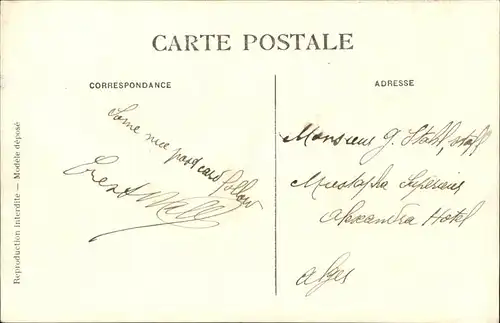 CARTE POSTALE
CORRESPONDANCE
Some nice post card follow
ADRESSE
Monsieur G. Stahl, staff
Mustapha Supérieur
Alexandra Hotel
Alger
Reproduction interdite — Modèle déposé